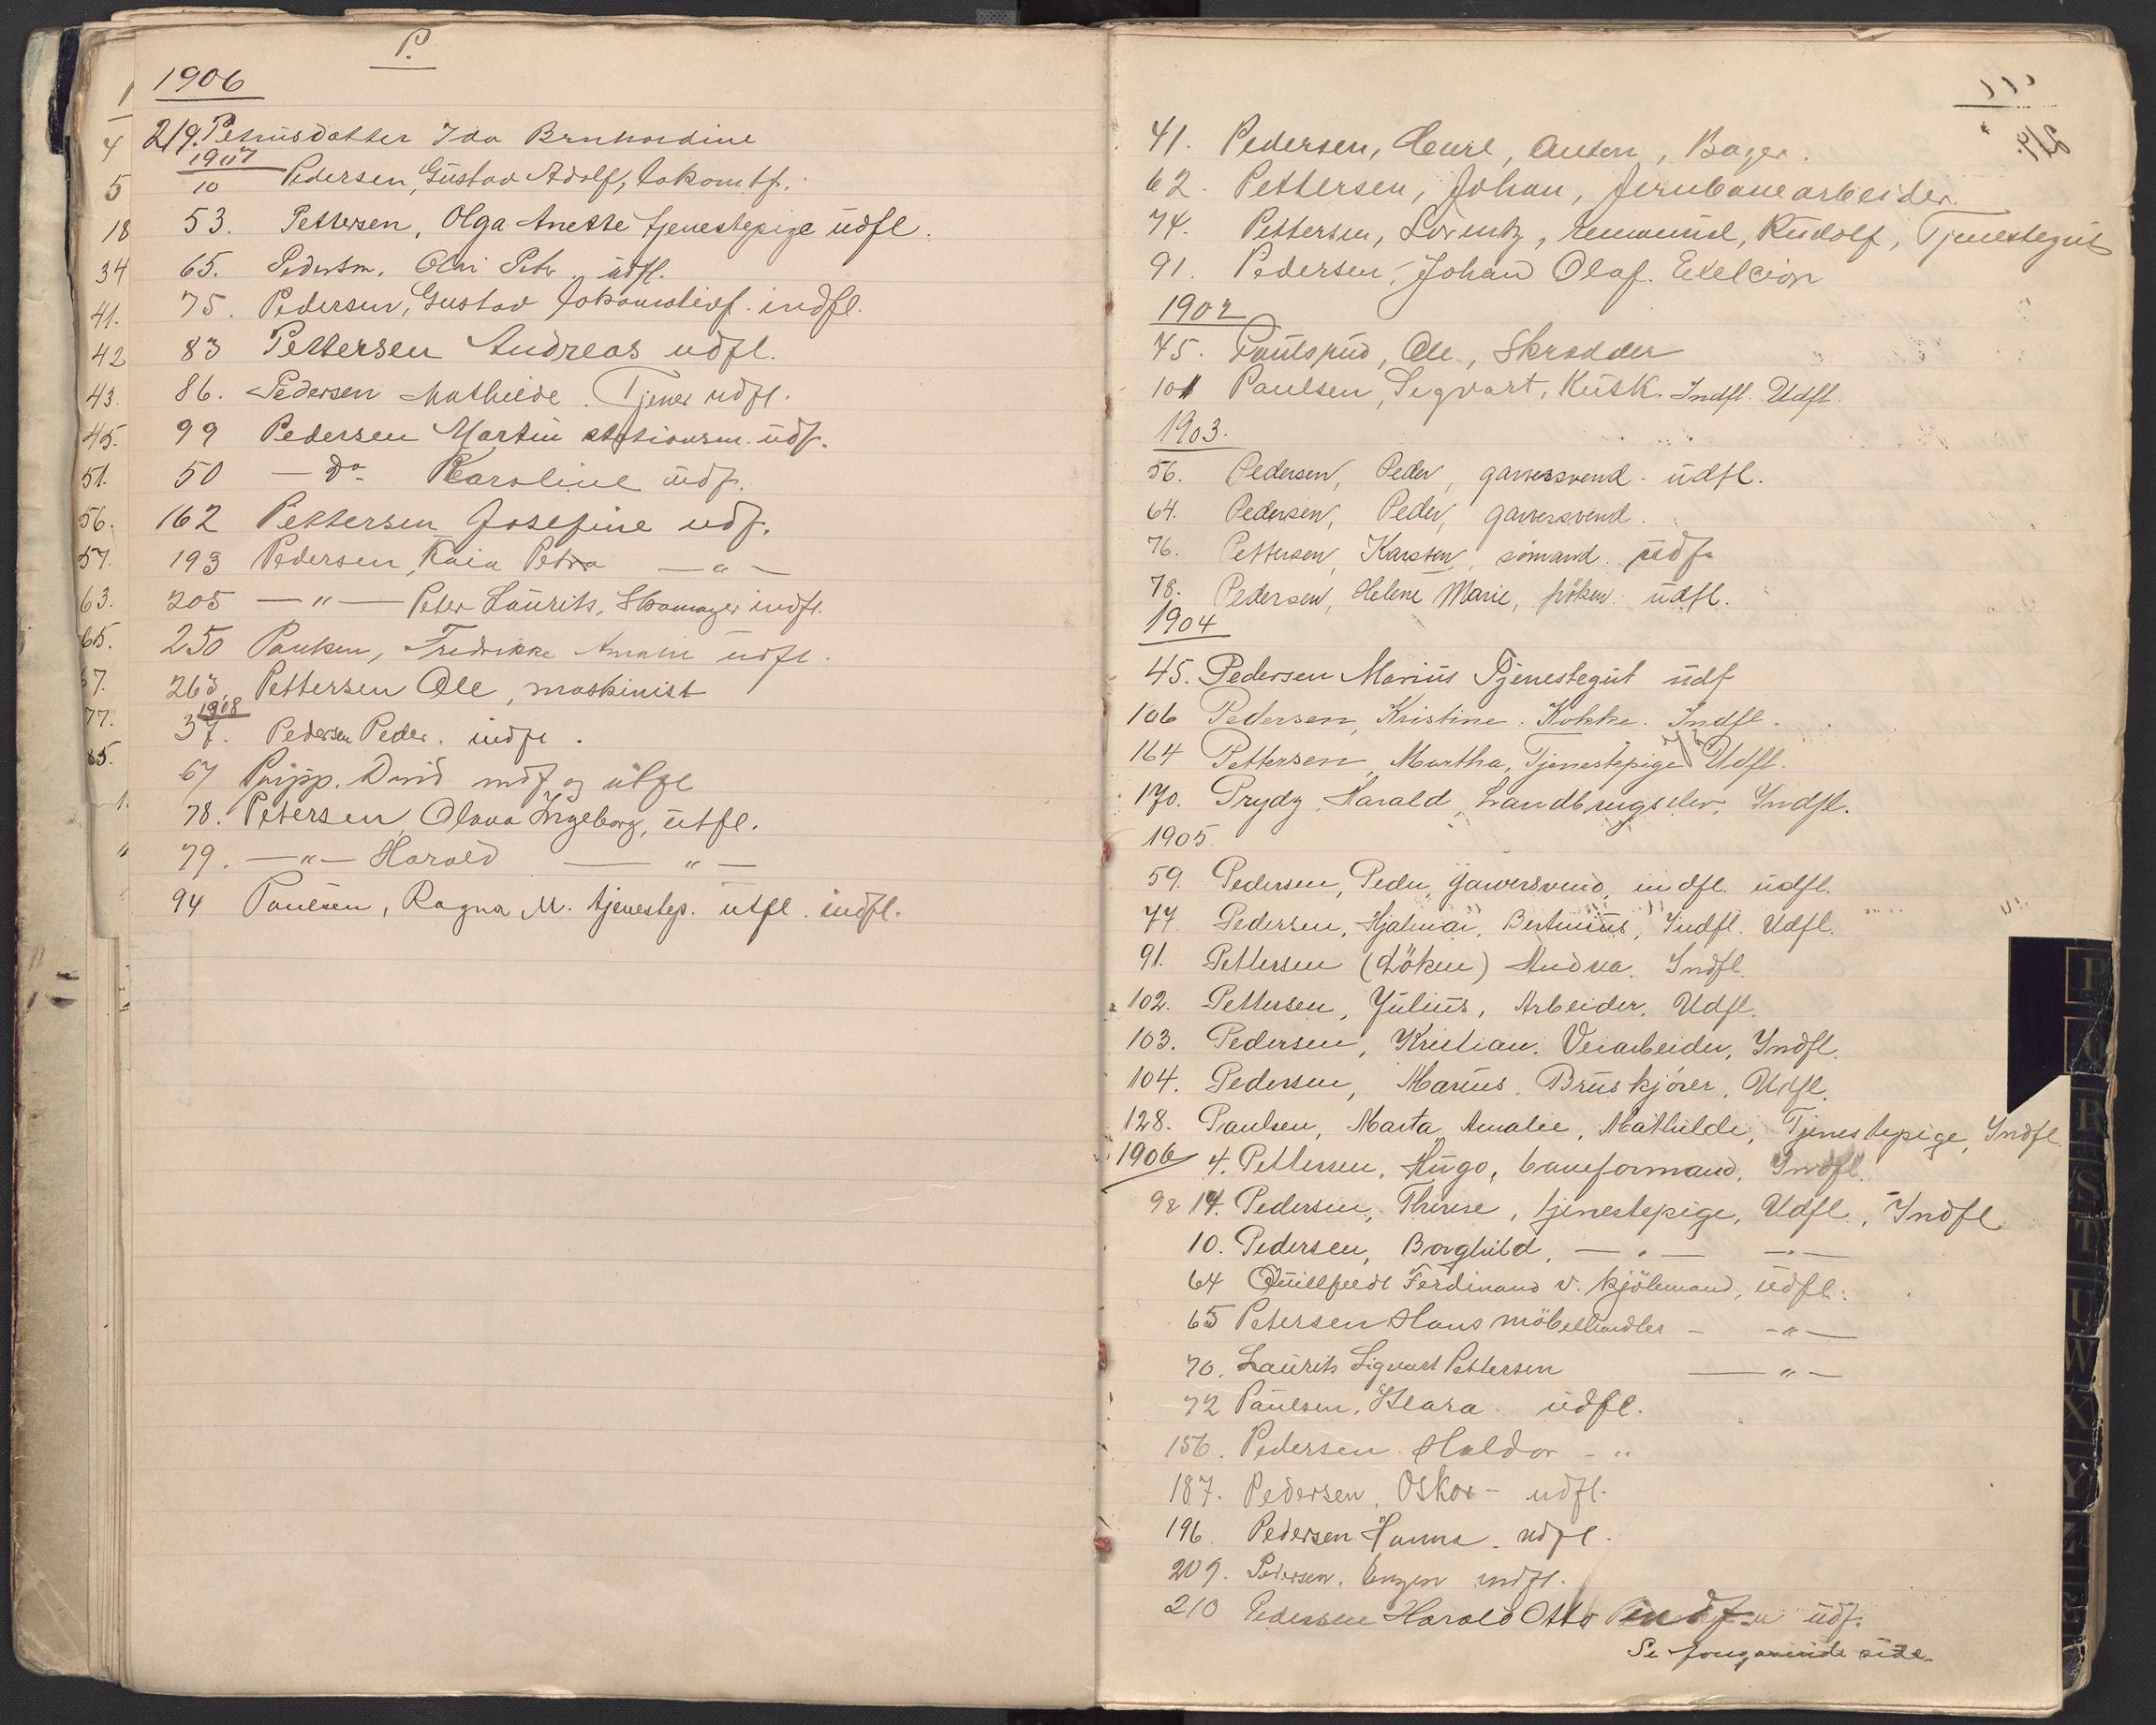 P.
1906
219. Petrusdatter Ida Brnhardine
1907
10 Pedersen, Gustav Adolf, lokomtf.
53. Pettersen, Olga Anette tjenestepige udfl.
65. Pedersen, Petr. udfl.
75. Pedersen, Gustav lokomotivf. indfl.
83 Pettersen Andreas udfl.
86. Pedersen Mathilde. Tjener udfl.
99 Pedersen Martin stationsm. udf.
50 — do Karoline udf.
162 Pettersen Josefine udf.
193 Pedersen, Kaia Petra — " —
205 — " — Peter Laurits, Skomager indfl.
250 Fredrikke udfl.
263. Pettersen Ole, maskinist
1908
37. Pedersen Peder. indfl.
67 Pripp. David indf og utfl
78. Petersen, Olava Ingeborg, utfl.
79. — " — Harald — " —
94 Paulsen, Ragna M. tjenestep. utfl. indfl.
4
5
18
34
41.
42
43.
45.
51.
56.
57.
63.
65.
67.
77.
85.
41. Pedersen, Anton, Bager.
62. Pettersen, Johan, Jernbanearbeider.
74. Pettersen, Lorentz, Rudolf, Tjenestegut
91. Pedersen, Johan Olaf.
1902
45. Ole, Skrædder
101 Paulsen, Sigvart, Kusk. Indfl. Udfl.
1903.
56. Pedersen, Peder, garversvend. udfl.
64. Pedersen, Peder, garversvend.
76. Pettersen, Karsten, sømand. udf.
78. Pedersen, Helene Marie, frøken. udfl.
1904
45. Pedersen Marius Tjenestegut udf
106 Pedersen, Kristine. Kokke. Indfl.
164 Pettersen, Martha, Tjenestepige Udfl.
170. Prydz, Harald, Landbrugselev, Indfl.
1905.
59. Pedersen, Peder, garversvend, indfl. udfl.
77. Pedersen, Hjalmar, Bertinius, Indfl. Udfl.
91. Pettersen (Löken) Andrea. Indfl.
102. Pettersen, Julius, Arbeider. Udfl.
103. Pedersen, Kristian. Veiarbeider, Indfl.
104. Pedersen, Marius. Bruskjører, Udfl.
128. Paulsen, Marta, Amalie, Mathilde, Tjenestepige, Indfl.
1906 4. Pettersen, Hugo, baneformand, Indfl.
98 14. Pedersen, Therese, tjenestepige, Udfl., Indfl
10. Pedersen, Borghild, — " — — " —
64 Quillfeldt Ferdinand v. kjøbmand, udfl.
65 Petersen Hans möbelhandler — — " —
70. Laurits Sigvart Pettersen — " —
72 Paulsen, Klara. udfl.
156. Pedersen Haldor - "
187. Pedersen, Oskar - udfl.
196. Pedersen Hanna. udfl.
209. Pedersen. indfl.
210 Pedersen Harald Otto udf.
Se foregaaende side.
P
R
S
T
U
W
X
Y
Z